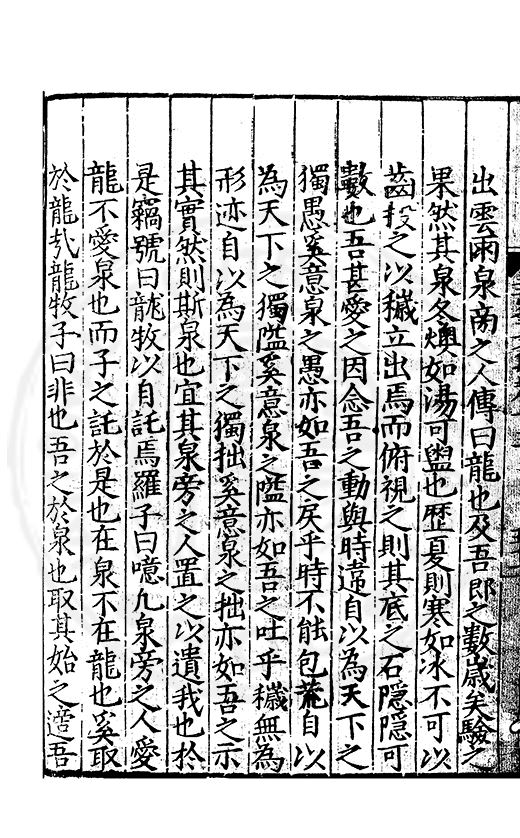 出雲雨泉旁之人傳曰龍也及吾郎之數歲矣驗之
果然其泉冬燠如湯可盥也歷夏則寒如冰不可以
齒投之以穢立出焉而俯視之則其底之石隱隱可
數也吾甚愛之因念吾之動與時違自以為天下之
獨愚奚意泉之愚亦如吾之戾乎時不能包荒自以
為天下之獨隘奚意泉之隘亦如吾之吐乎穢無為
形迹自以為天下之獨拙奚意泉之拙亦如吾之示
其實然則斯泉也宜其泉旁之人置之以遺我也於
是竊號曰龍牧以自託焉羅子曰噫凡泉旁之人愛
龍不愛泉也而子之託於是也在泉不在龍也奚取
於龍㢤龍牧子曰非也吾之於泉也取其始之遭吾